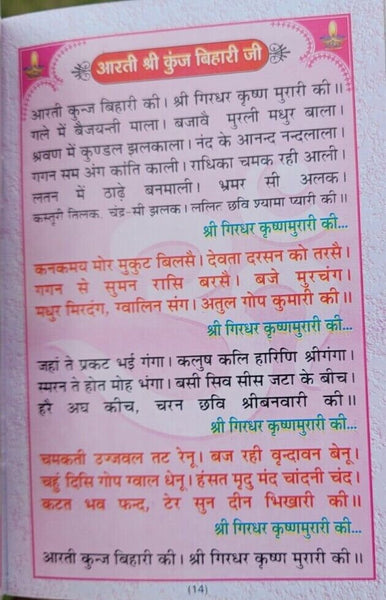 आरती श्री कुंज बिहारी जी
आरती कुन्ज बिहारी की। श्री गिरधर कृष्ण मुरारी की॥
गले में बैजयन्ती माला। बजावै मुरली मधुर बाला।
श्रवण में कुण्डल झलकाला। नंद के आनन्द नन्दलाला।
गगन सम अंग कांति काली। राधिका चमक रही आली।
लतन में ठाढ़े बनमाली। भ्रमर सी अलक।
कस्तूरी तिलक. चंद्र-सी झलक। ललित छवि श्यामा प्यारी की॥
श्री गिरधर कृष्णमुरारी की...
कनकमय मोर मुकुट बिलसै। देवता दरसन को तरसै।
गगन से सुमन रासि बरसै। बजे मुरचंग।
मधुर मिरदंग, ग्वालिन संग। अतुल गोप कुमारी की॥
श्री गिरधर कृष्णमुरारी की...
जहां ते प्रकट भई गंगा। कलुष कलि हारिणि श्रीगंगा।
स्मरन ते होत मोह भंगा। बसी सिव सीस जटा के बीच।
हरै अघ कीच, चरन छवि श्रीबनवारी की॥
श्री गिरधर कृष्णमुरारी की...
चमकती उज्जवल तट रेनू। बज रही वृन्दावन बेनू।
चहुं दिसि गोप ग्वाल धेनू। हंसत मृदु मंद चांदनी चंद।
कटत भव फन्द, टेर सुन दीन भिखारी की॥
श्री गिरधर कृष्णमुरारी की...
आरती कुन्ज बिहारी की। श्री गिरधर कृष्ण मुरारी की॥
(14)